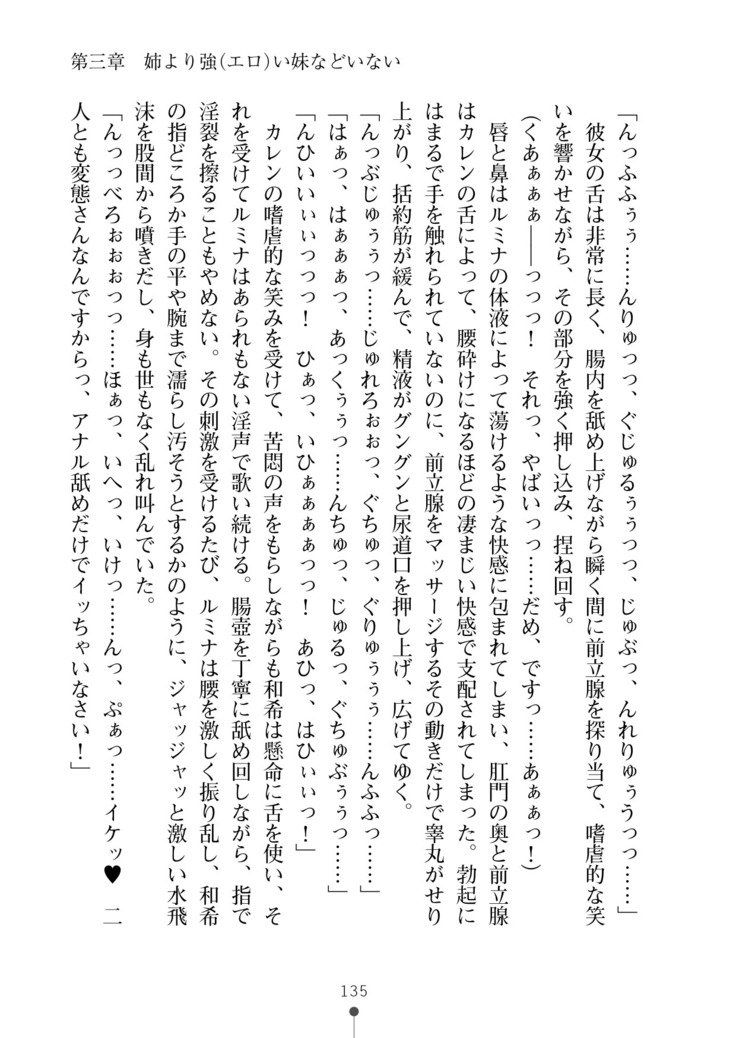 第三章　姉より強(エロ)い妹などいない
「んっふふぅぅ……んりゅっっ、ぐじゅるぅぅっっ、じゅぶっ、んれりゅぅうっっ……」
　彼女の舌は非常に長く、腸内を舐め上げながら瞬く間に前立腺を探り当て、嗜虐的な笑
いを響かせながら、その部分を強く押し込み、捏ね回す。
（くあぁぁぁ――っっっ！　それっ、やばいっっ……だめ、ですっ……あぁぁっ！）
　唇と鼻はルミナの体液によって蕩けるような快感に包まれてしまい、肛門の奥と前立腺
はカレンの舌によって、腰砕けになるほどの凄まじい快感で支配されてしまった。勃起に
はまるで手を触れられていないのに、前立腺をマッサージするその動きだけで睾丸がせり
上がり、括約筋が緩んで、精液がグングンと尿道口を押し上げ、広げてゆく。
「んっぷじゅぅぅっ……じゅれろぉぉっ、ぐちゅっ、ぐりゅぅぅぅ……んふふっ……」
「はぁっ、はぁぁぁっ、あっくぅぅっ……んちゅっ、じゅるっ、ぐちゅぶぅぅっ……」
「んひいいぃぃっっっ！　ひぁっ、いひぁぁぁぁっっ！　あひっ、はひぃぃっ！」
　カレンの嗜虐的な笑みを受けて、苦悶の声をもらしながらも和希は懸命に舌を使い、そ
れを受けてルミナはあられもない淫声で歌い続ける。腸壺を丁寧に舐め回しながら、指で
淫裂を擦ることもやめない。その刺激を受けるたび、ルミナは腰を激しく振り乱し、和希
の指どころか手の平や腕まで濡らし汚そうとするかのように、ジャッジャッと激しい水飛
沫を股間から噴きだし、身も世もなく乱れ叫んでいた。
「んっっべろぉぉぉっっ……ほぁっ、いへっ、いけっ……んっ、ぷぁっ……イケッ♥　二
人とも変態さんなんですからっ、アナル舐めだけでイッちゃいなさい！」
135